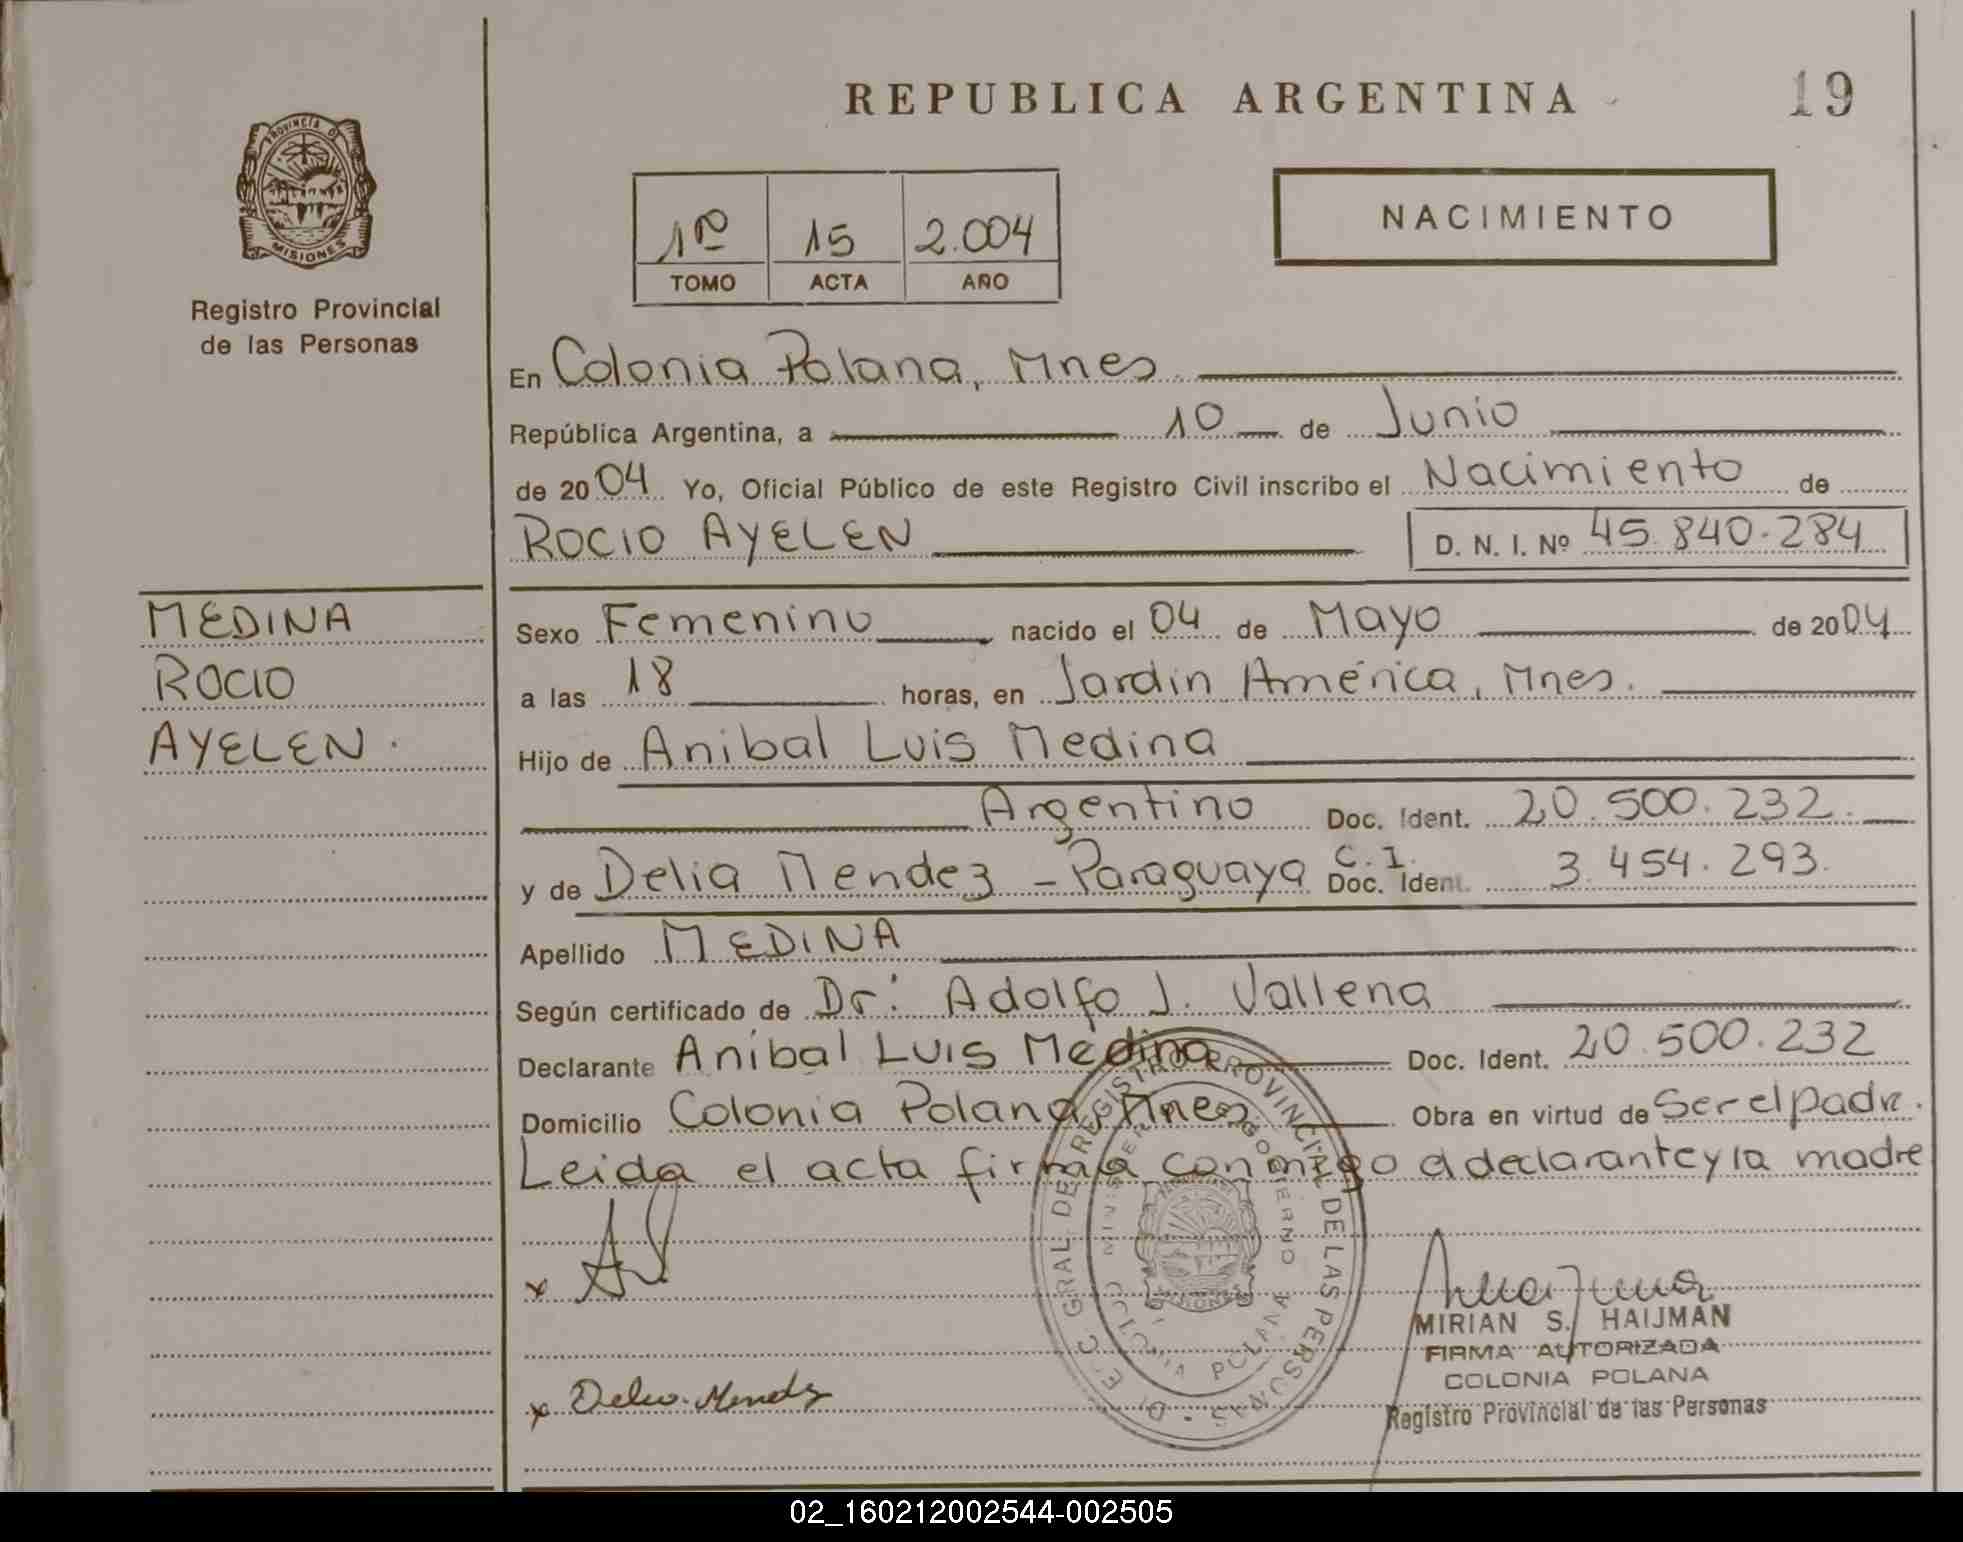 REPUBLICA ARGENTINA
19
PROVINCIA DE
MISIONES
Registro Provincial
de las Personas
1º 15 2.004
TOMO ACTA AÑO
NACIMIENTO
En Colonia Polana, Mnes.
República Argentina, a 10 de Junio
de 2004 Yo, Oficial Público de este Registro Civil inscribo el Nacimiento de
ROCIO AYELEN D. N. I. Nº 45.840.284
MEDINA
ROCIO
AYELEN.
Sexo Femenino nacido el 04 de Mayo de 2004
a las 18 horas, en Jardin América, Mnes.
Hijo de Anibal Luis Medina
Argentino Doc. Ident. 20.500.232.
y de Delia Mendez - Paraguaya C.I. Doc. Ident. 3.454.293.
Apellido MEDINA
Según certificado de Dr: Adolfo J. Vallena
Declarante Anibal Luis Medina Doc. Ident. 20.500.232
Domicilio Colonia Polana Mnes Obra en virtud de Ser el padre.
Leida el acta firma conmigo el declarante y la madre
x
x Delia Mendez
DIREC. GRAL DE REGISTRO PROVINCIAL DE LAS PERSONAS
COLONIA POLANA
MIRIAN S. HAIJMAN
FIRMA AUTORIZADA
COLONIA POLANA
Registro Provincial de las Personas
02_160212002544-002505